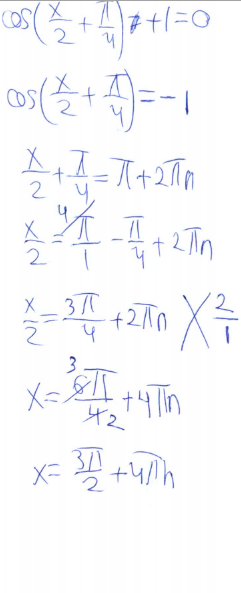 cos(x/2 + π/4) + 1 = 0
cos(x/2 + π/4) = -1
x/2 + π/4 = π + 2πn
x/2 = ⁴π/1 - π/4 + 2πn
x/2 = 3π/4 + 2πn × 2/1
x = ³6π/4 2 + 4πn
x = 3π/2 + 4πn